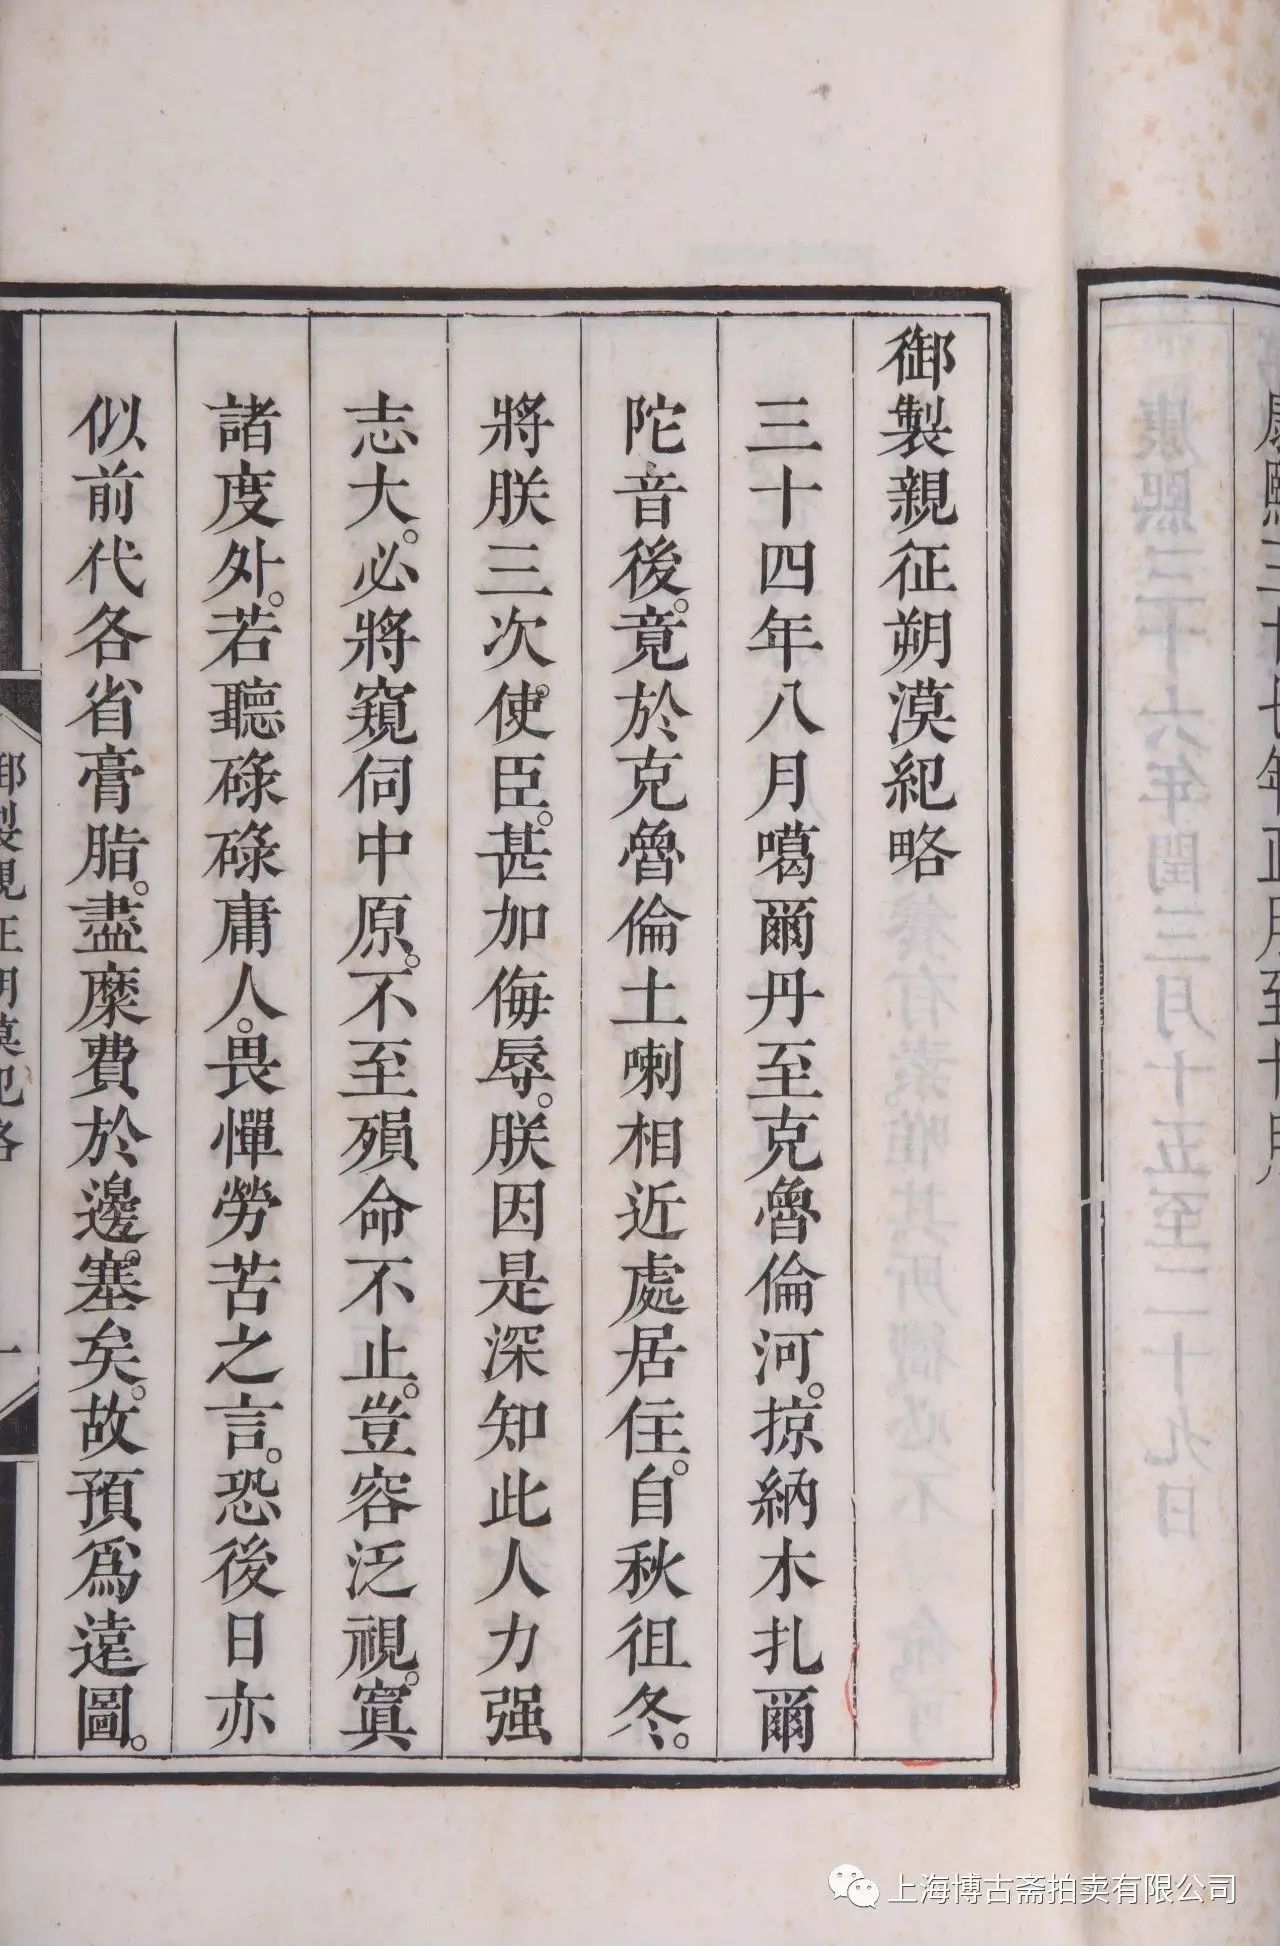 康熙三十七年正月至十月
御製親征朔漠紀略
三十四年八月噶爾丹至克魯倫河。掠納木扎爾
陀音後。竟於克魯倫土喇相近處居住。自秋徂冬。
將朕三次使臣。甚加侮辱。朕因是深知此人力强
志大。必將窺伺中原。不至殞命不止。豈容泛視。寘
諸度外。若聽碌碌庸人。畏憚勞苦之言。恐後日亦
似前代各省膏脂。盡糜費於邊塞矣。故預爲遠圖。
御製親征朔漠紀略
一
上海博古斋拍卖有限公司